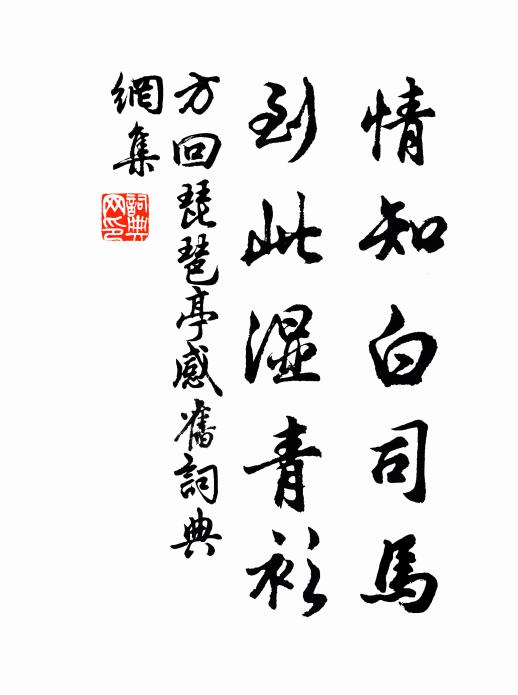 情知白司馬
到此湿青衫
方回琵琶亭感舊詞典
網集
詞典
网印